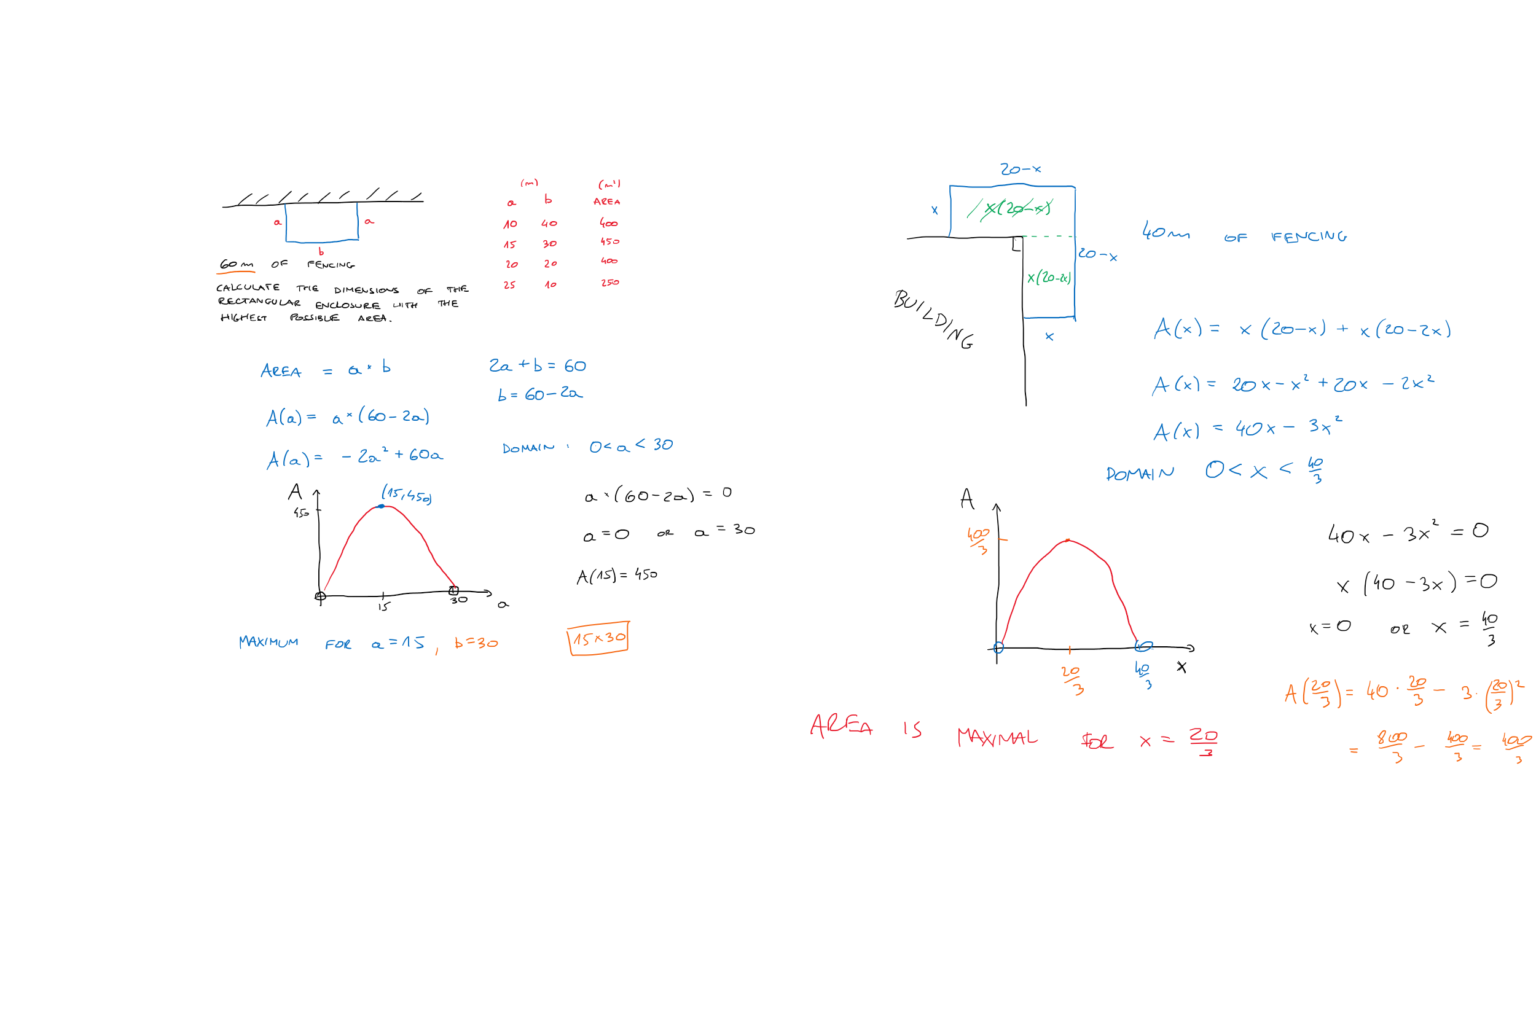 a
a
b
60m OF FENCING
CALCULATE THE DIMENSIONS OF THE
RECTANGULAR ENCLOSURE WITH THE
HIGHEST POSSIBLE AREA.
(m) (m²)
a b AREA
10 40 400
15 30 450
20 20 400
25 10 250
AREA = a · b
2a + b = 60
b = 60 - 2a
A(a) = a · (60 - 2a)
A(a) = - 2a² + 60a
DOMAIN : 0 < a < 30
A
450
(15, 450)
15
30
a
a · (60 - 2a) = 0
a = 0 OR a = 30
A(15) = 450
MAXIMUM FOR a = 15 , b = 30
15 × 30
20 - x
x
x(20-x)
20 - x
x(20-2x)
x
BUILDING
40m OF FENCING
A(x) = x (20-x) + x (20-2x)
A(x) = 20x - x² + 20x - 2x²
A(x) = 40x - 3x²
DOMAIN 0 < x < 40/3
A
400/3
20/3
40/3
x
40x - 3x² = 0
x (40 - 3x) = 0
x = 0 OR x = 40/3
A(20/3) = 40 · 20/3 - 3 · (20/3)²
= 800/3 - 400/3 = 400/3
AREA IS MAXIMAL FOR x = 20/3